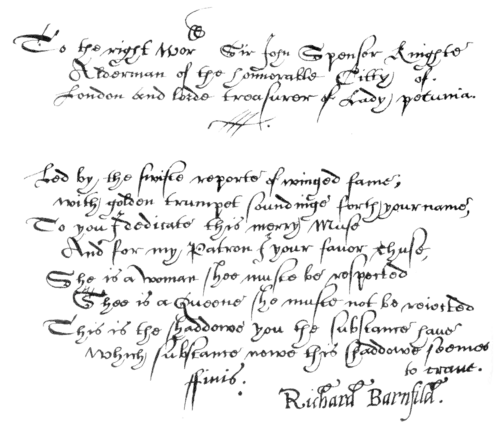 To the right Wor Sir John Spenser Knighte
Alderman of the honnorable Citty of
London and lorde treasurer of Lady pecunia.
Led by the swifte reports of winged fame,
with golden trumpet soundinge forth your name,
To you I dedicate this merry Muse
And for my Patron I your favor chuse,
She is a Woman shee muste be respected
Shee is a Queene she muste not be reiected
This is the shaddowe you the substance haue
Which substance nowe this shaddowe seemes
to craue.
ffinis.
Richard Barnfild.